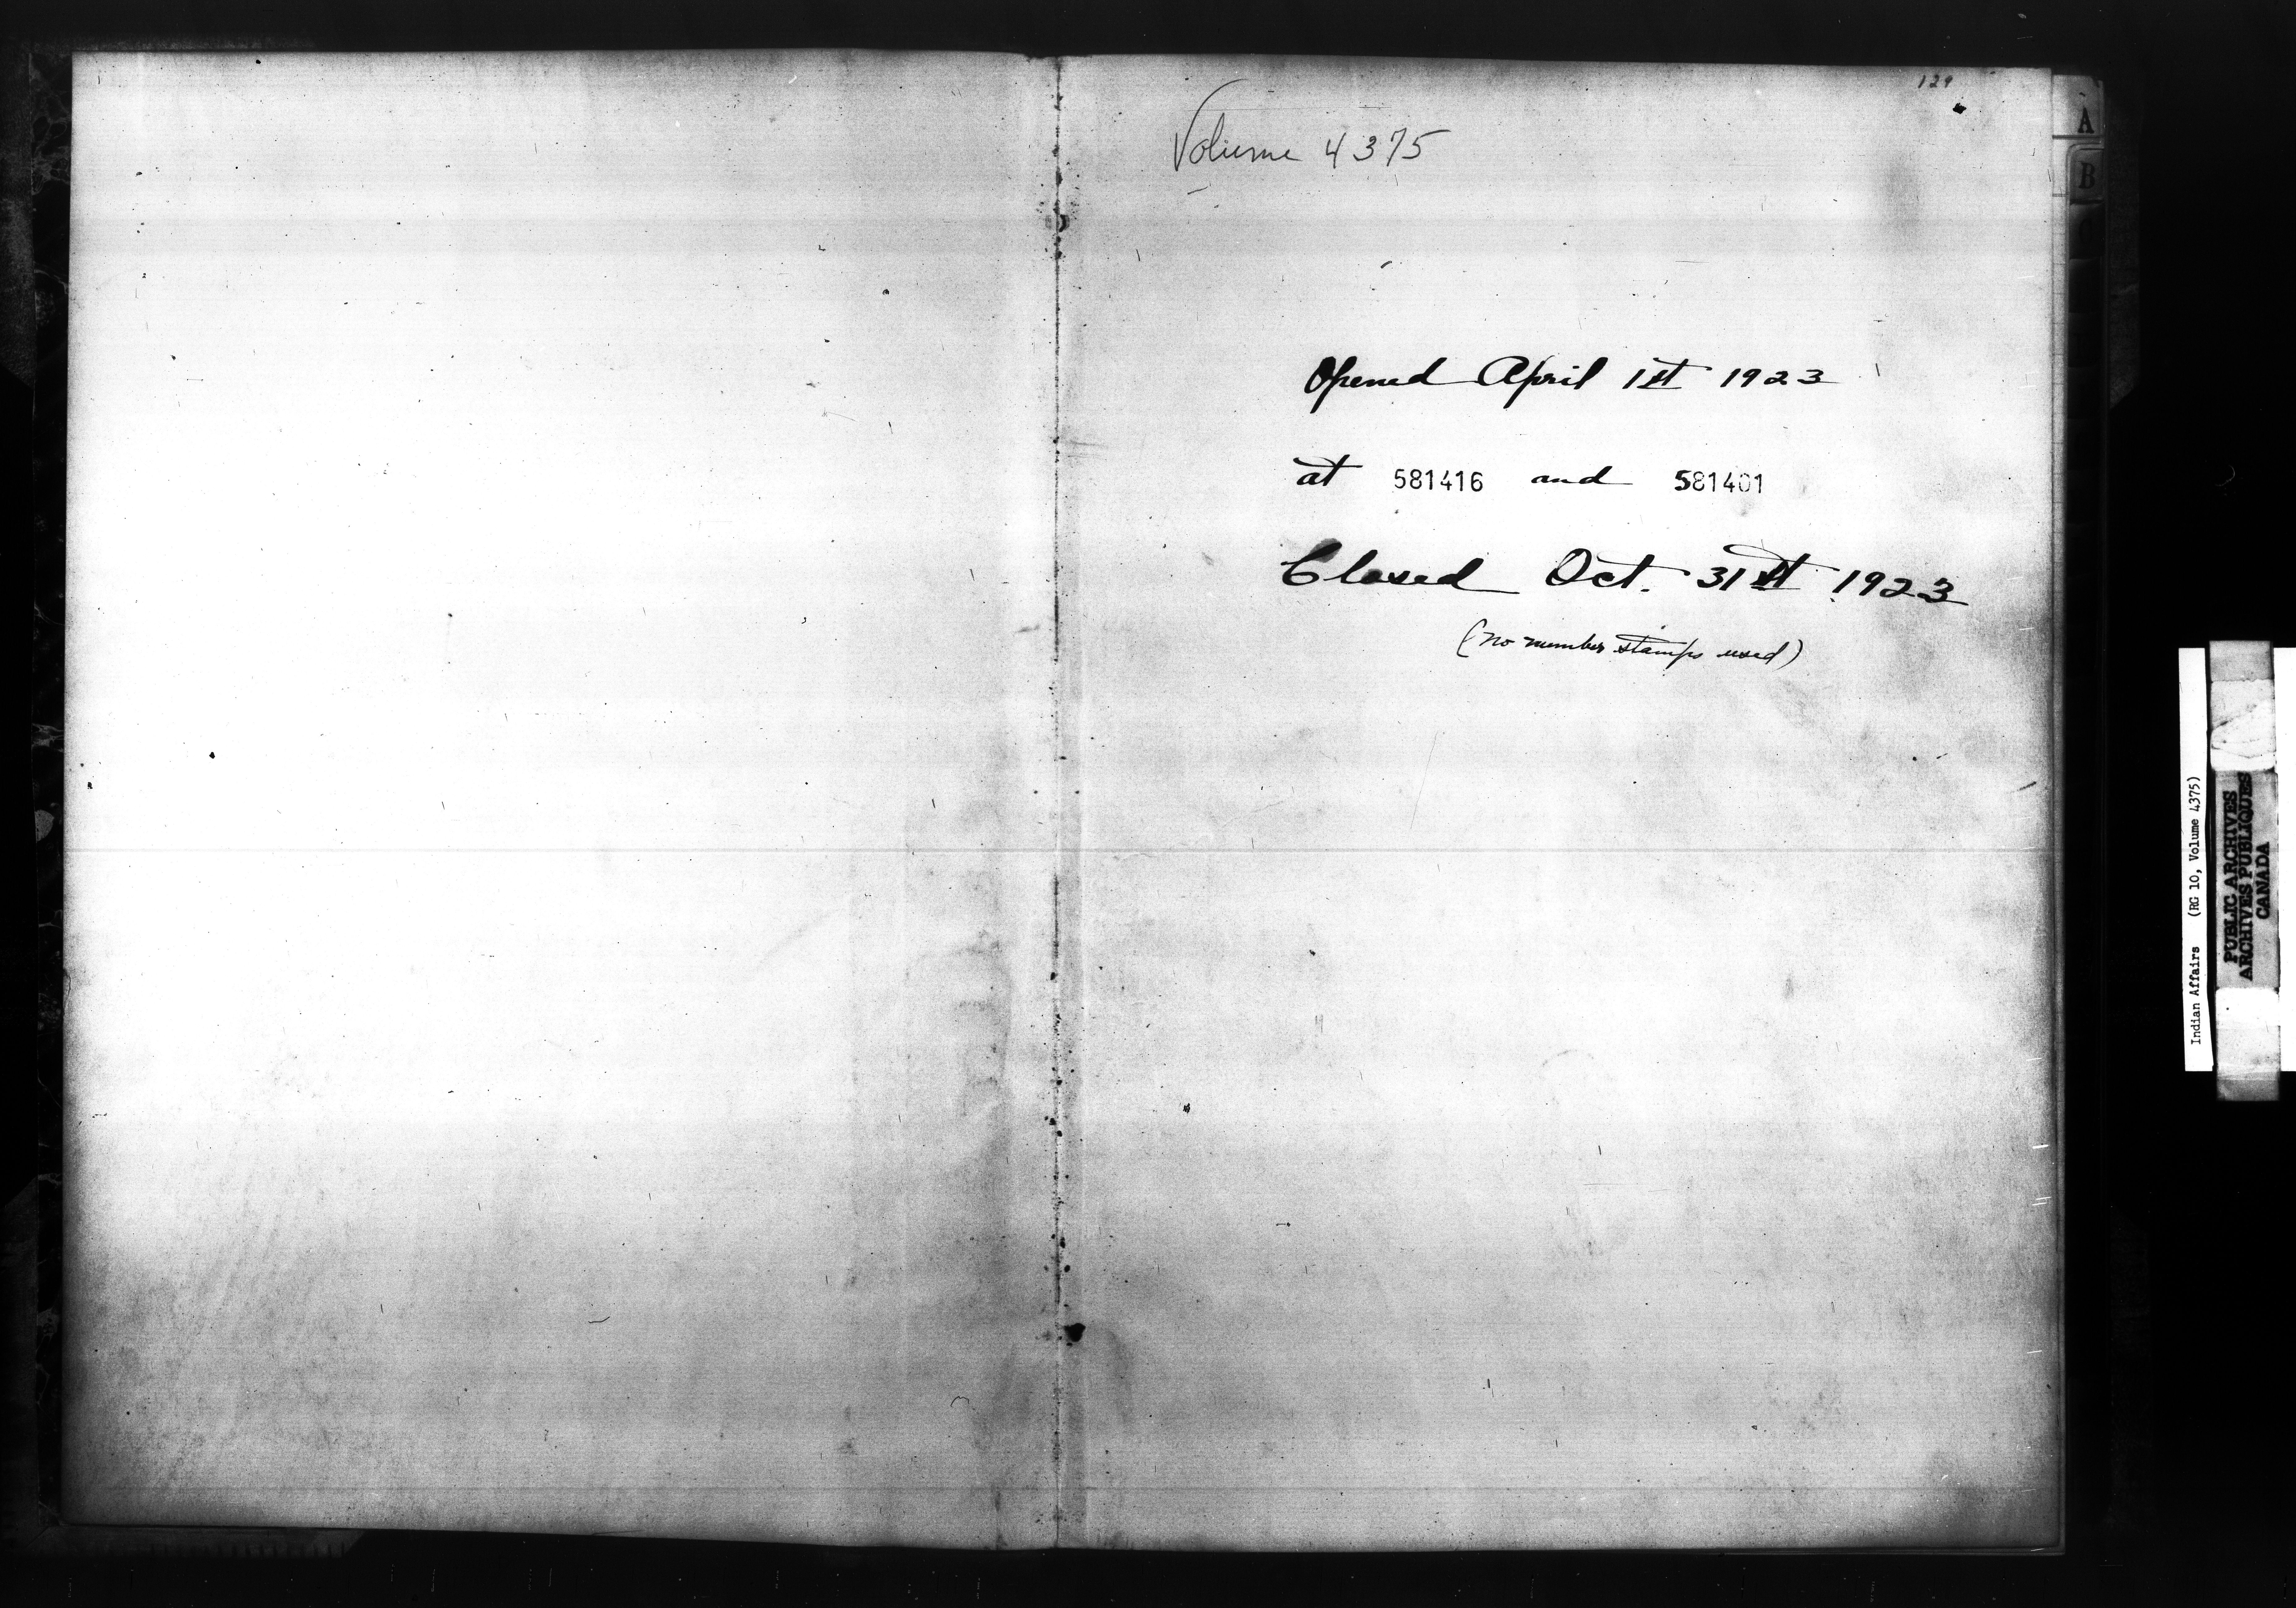 129
Volume 4375
Opened April 1st 1923
at 581416 and 581401
Closed Oct. 31st 1923
(no number stamps used)
A
B
C
Indian Affairs (RG 10, Volume 4375)
PUBLIC ARCHIVES
ARCHIVES PUBLIQUES
CANADA